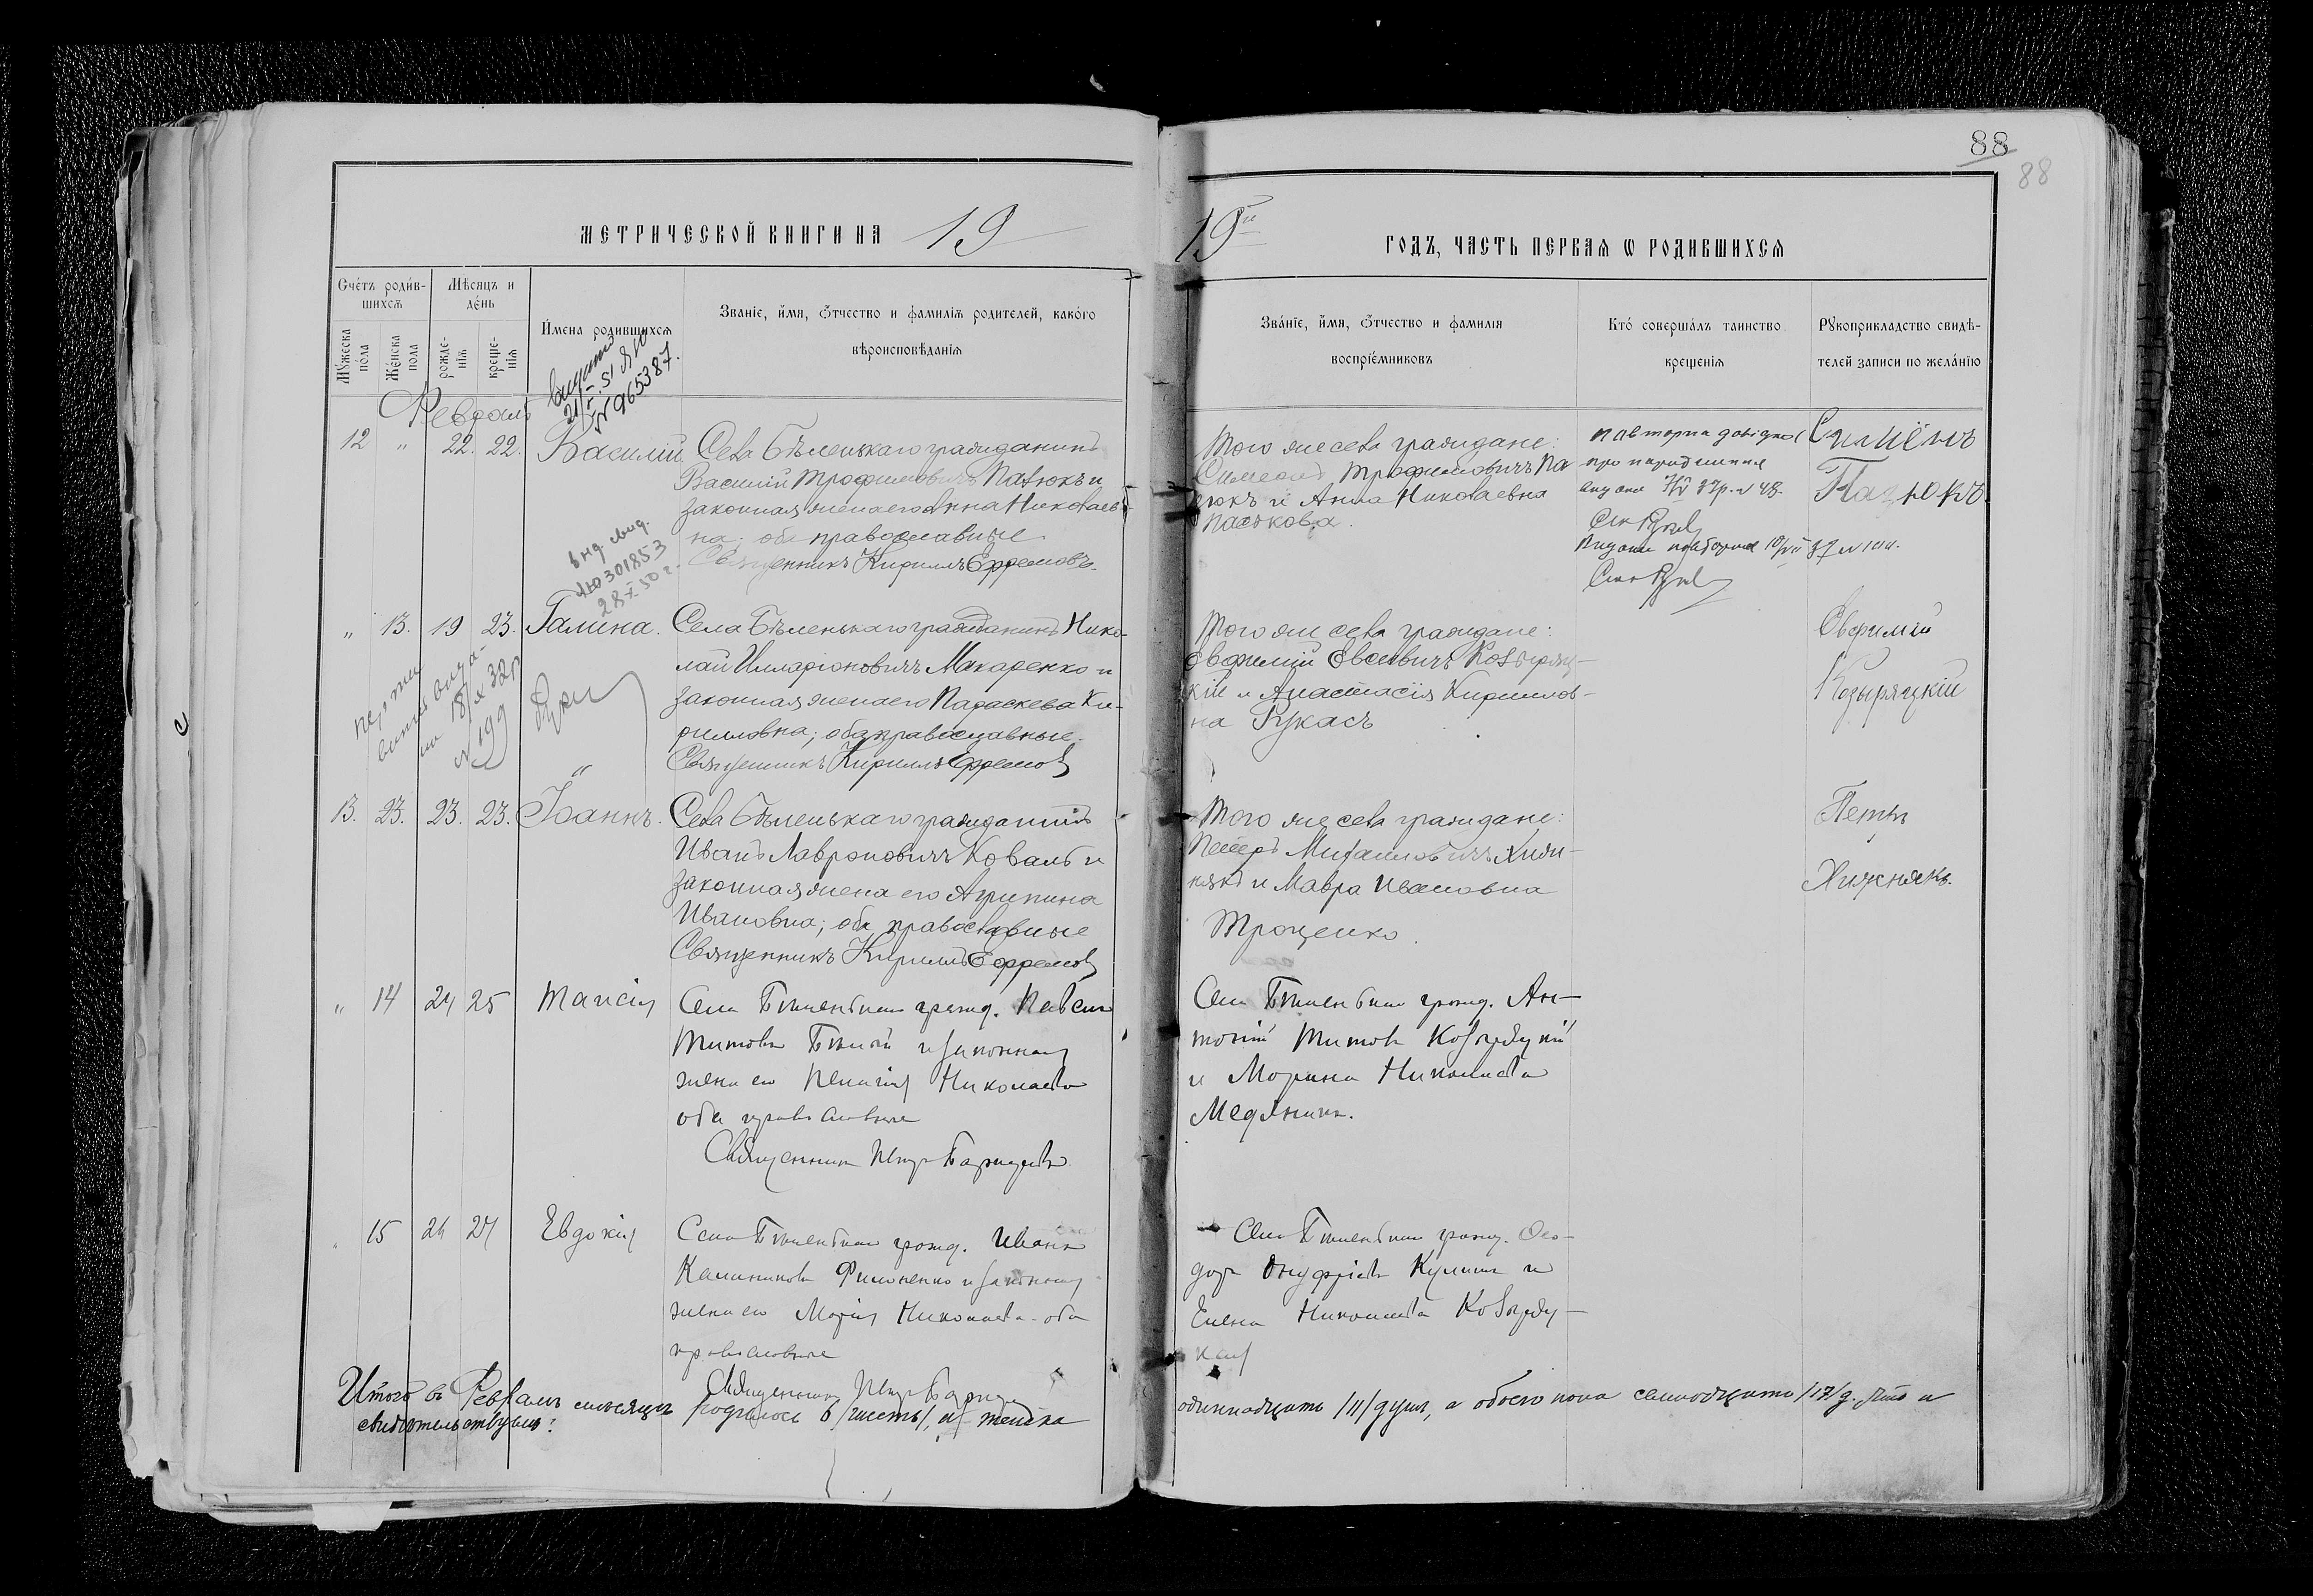 88
88
МЕТРИЧЕСКОЙ КНИГИ НА 19
19й ГОДЪ, ЧАСТЬ ПЕРВАѦ Ѡ РОДИВШИХСѦ
Счетъ родив-
шихсѧ
Мѣсяцъ и
день
Мужеска
пола
Женска
пола
рожде-
нія
креще-
нія
Имена родившихсѧ
Званіе, имя, ѿчество и фамилія родителей, какого
вѣроисповѣданія
Званіе, имя, ѿчество и фамилія
воспріемниковъ
Кто совершалъ таинство
крещенія
Рукоприкладство свидѣ-
телей записи по желанію
№ 965387.
Февраль
12 " 22. 22. Василій
Села Бѣленькаго гражданинъ
Василій Трофимовичъ Пазюкъ и
законная жена его Анна Николаев-
на; оба православные.
Священникъ Кириллъ Ефремовъ.
Того же села граждане:
Симеонъ Трофимовичъ Па
зюкъ и Анна Николаевна
Паськова.
Пазюкъ
301853
28 50 г.
" 13. 19 23. Галина.
Села Бѣленькаго гражданинъ Нико-
лай Илларіоновичъ Макаренко и
законная жена его Параскева Ки-
рилловна; оба православные.
Священникъ Кириллъ Ефремовъ
Того же села граждане:
Евфимій Евсеевичъ Козыряц-
кій и Анастасія Кириллов-
на Рукасъ
Евфимій
Козыряцкій
18/X 32 р
№ 199
13. 23. 23. 23. Іоаннъ.
Села Бѣленькаго гражданинъ
Иванъ Лавроновичъ Коваль и
законная жена его Агрипина
Ивановна; оба православные
Священникъ Кириллъ Ефремовъ
Того же села граждане:
Петръ Михаиловичъ Хиж-
някъ и Мавра Ивановна
Троценко.
Петръ
Хижнякъ.
" 14 24 25 Таисія
Села Бѣленькаго гражд. Павелъ
Титовъ Бѣлый и законная
жена его Пелагія Николаева
оба православные
Священникъ Петръ
Села Бѣленькаго гражд. Ан-
тоній Титовъ Козыряцкій
и Марина Николаева
Медяникъ.
" 15 26 27 Евдокія
Села Бѣленькаго гражд. Иванъ
Калиниковъ Филоненко и законная
жена его Марія Николаева оба
православные
Священникъ Петръ
Села Бѣленькаго гражд. Ѳео-
доръ Онуфріевъ Кулишъ и
Елена Николаева Козыряц-
кая
Итого въ Февралѣ мѣсяцѣ родилось 6 /шесть/, женска
одиннадцать /11/ душъ, а обоего пола семнадцать /17/ д. что и
свидѣтельствуемъ: